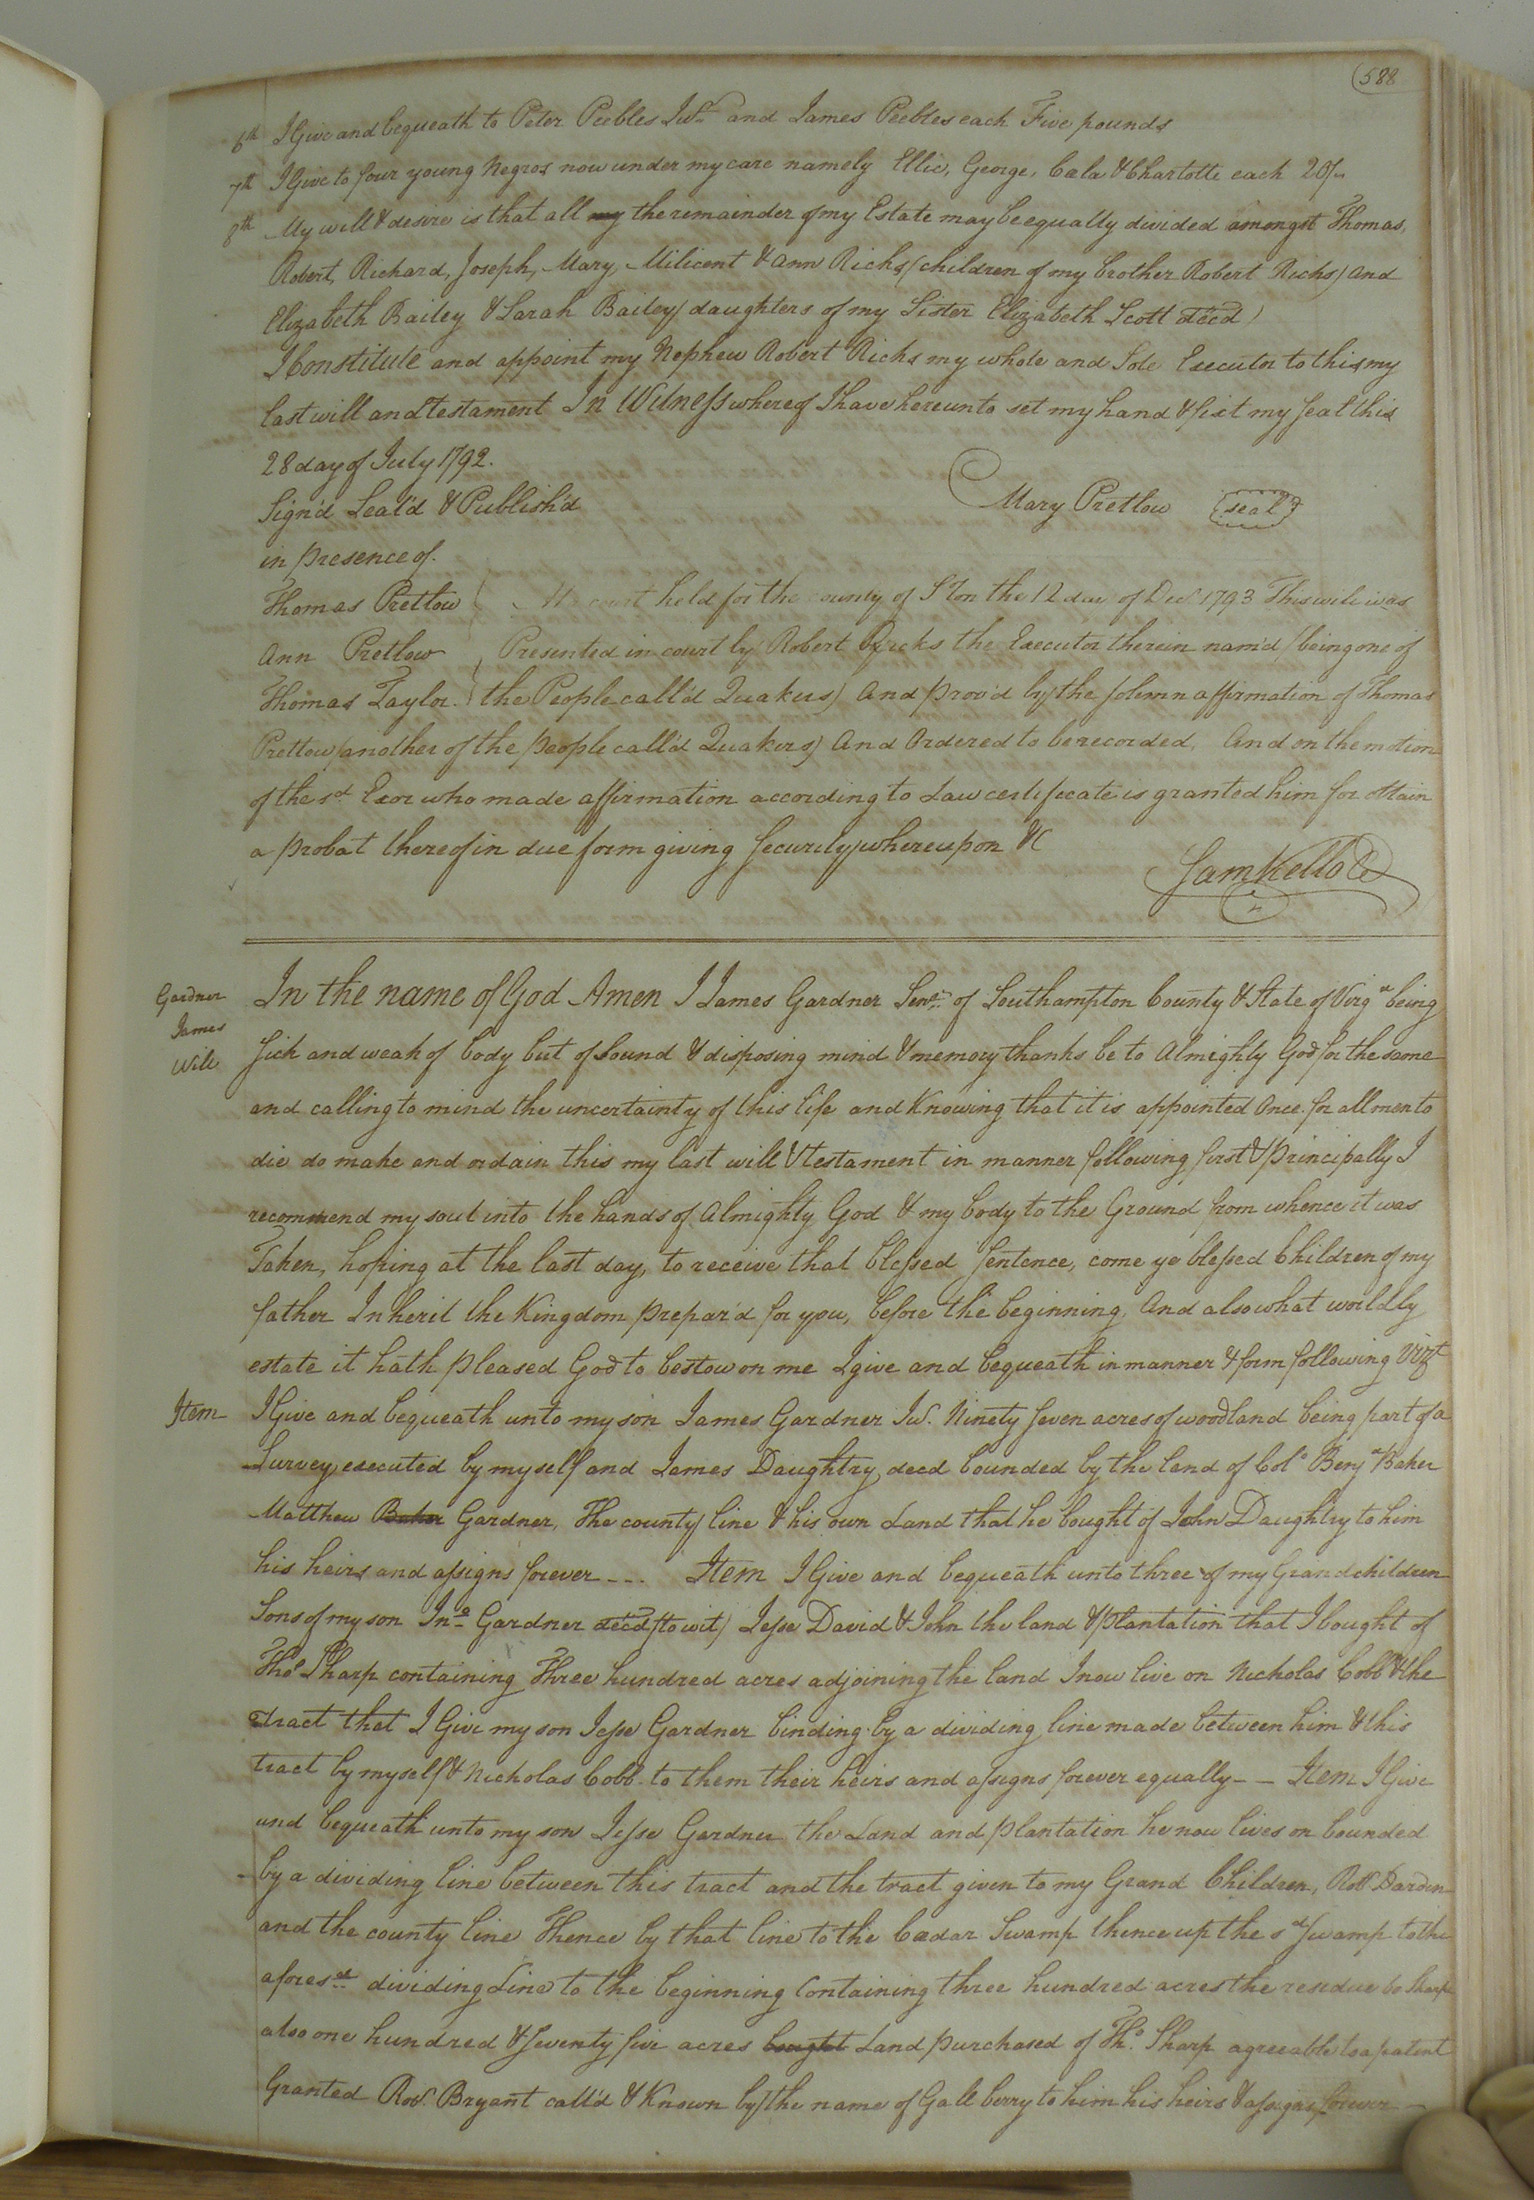 588
6th I Give and bequeath to Peter Peebles Junr and James Peebles each Five pounds
7th I Give to four young Negros now under my care namely Ellic, George, Cala & Charlotte each 20/-
8th My will & desire is that all my the remainder of my Estate may be equally divided amongst Thomas,
Robert, Richard, Joseph, Mary, Milicent & Ann Ricks (children of my brother Robert Ricks) and
Elizabeth Bailey & Sarah Bailey (daughters of my Sister Elizabeth Scott decd)
I Constitute and appoint my Nephew Robert Ricks my whole and Sole Executor to this my
last will and testament In Witness whereof I have hereunto set my hand & fixt my seal this
28 day of July 1792.
Sign'd Seal'd & Publish'd Mary Pretlow (seal)
in presence of
Thomas Pretlow At a court held for the county of S Ton the 12 day of Der 1793 This will was
Ann Pretlow Presented in court by Robert Ricks the Executor therein nam'd (being one of
Thomas Taylor. the People call'd Quakers) And prov'd by the solemn affirmation of Thomas
Pretlow (another of the people call'd Quakers) And Ordered to be recorded, And on the motion
of the sd Exor who made affirmation according to Law certificate is granted him for obtain
a probat thereof in due form giving security whereupon &c
Sam Kello C
Gardner
James
Will
In the name of God Amen I James Gardner Senr of Southampton County & State of Virga being
sick and weak of body but of Sound & disposing mind & memory thanks be to Almighty God for the same
and calling to mind the uncertainty of this life and Knowing that it is appointed Once for all men to
die do make and ordain this my last will & testament in manner following first & Principally I
recommend my soul into the hands of Almighty God & my body to the Ground from whence it was
Taken, hoping at the last day, to receive that blessed Sentence, come ye blessed Children of my
father Inherit the Kingdom prepar'd for you, before the beginning, And also what worldly
estate it hath pleased God to bestow on me I give and bequeath in manner & form following Vizt
Item I Give and bequeath unto my son James Gardner Jur. Ninety seven acres of woodland being part of a
Survey executed by myself and James Daughtry, decd bounded by the land of Colo Benja Baker
Matthew Baker Gardner, The county line & his own Land that he bought of John Daughtry to him
his heirs and assigns forever --- Item I Give and bequeath unto three of my Grandchildren
Sons of my son Jno Gardner decd (to wit) Jesse David & John the land & Plantation that I bought of
Thos Sharp containing Three hundred acres adjoining the land I now live on Nicholas Cobb & the
tract that I Give my son Jesse Gardner binding by a dividing line made between him & this
tract by myself & Nicholas Cobb to them their heirs and assigns forever equally -- Item I Give
and bequeath unto my son Jesse Gardner the Land and plantation he now lives on bounded
by a dividing line between this tract and the tract given to my Grand Children, Robt Darden
and the county line Thence by that line to the Cedar Swamp thence up the sd swamp to the
aforesd dividing Line to the beginning Containing three hundred acres the residue Sharp
also one hundred & seventy five acres bought Land purchased of Tho. Sharp agreeable to a patent
Granted Robt. Bryant call'd & Known by the name of Gall berry to him his heirs & assigns forever